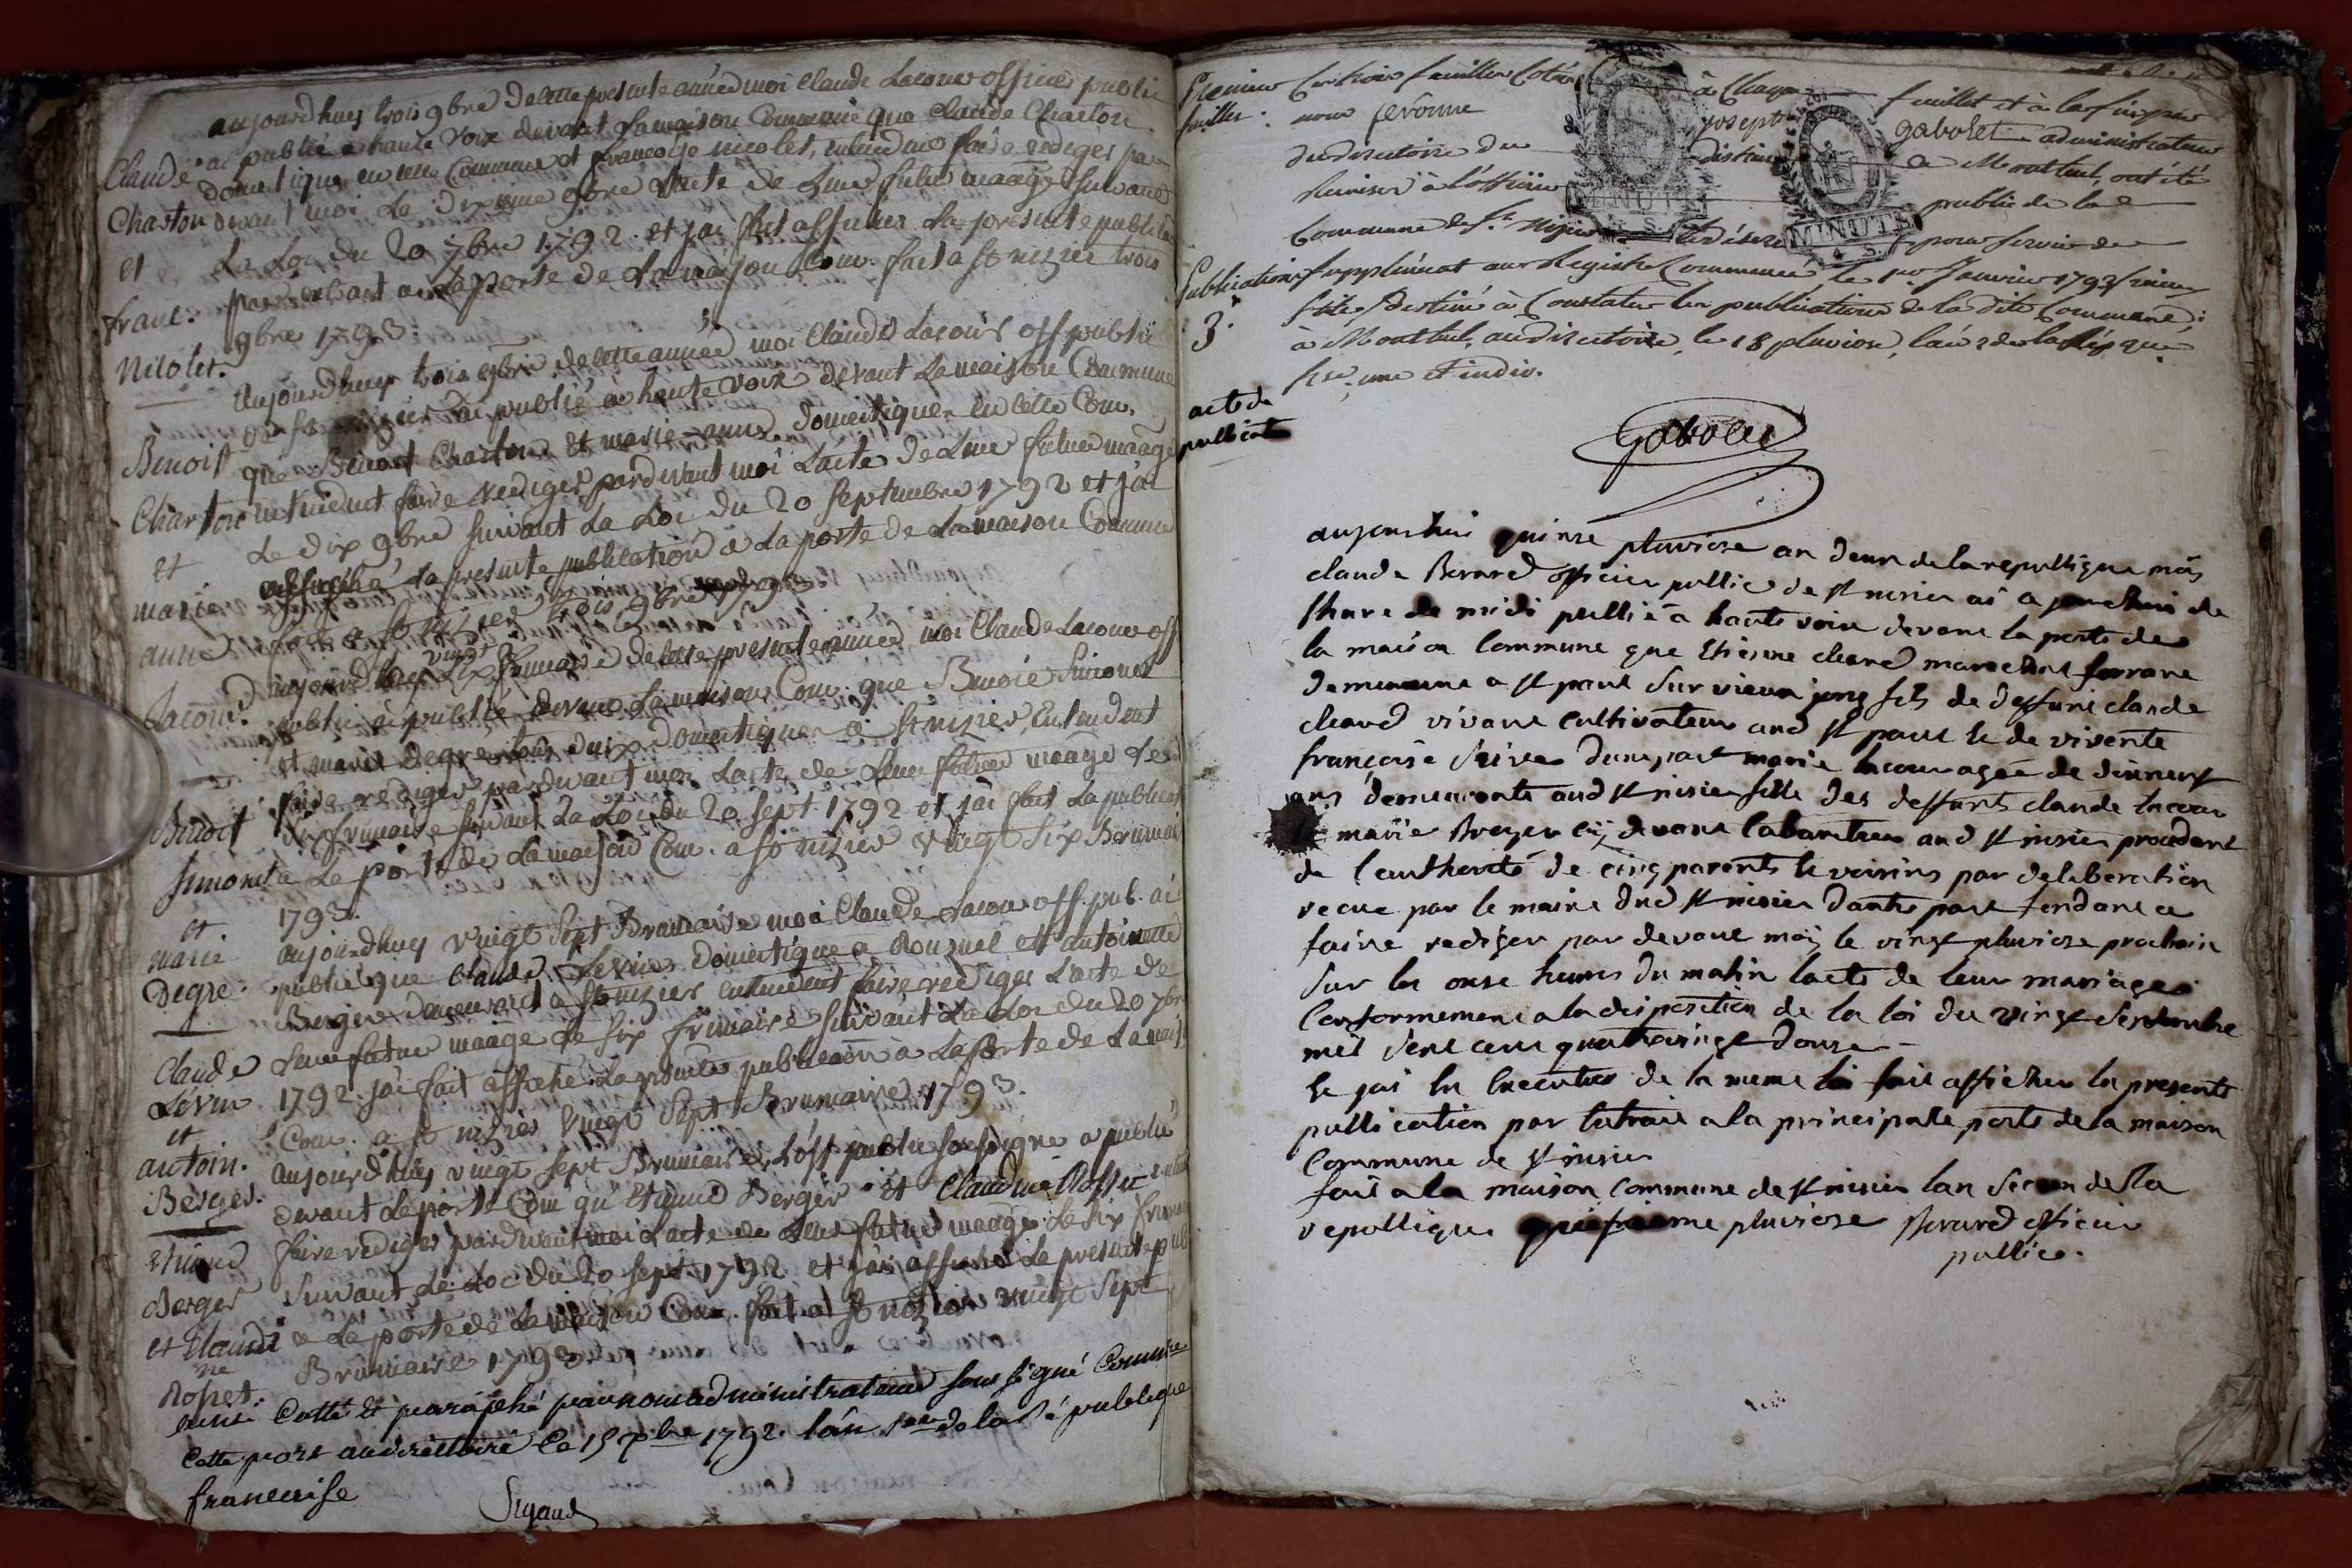 aujourdhuy trois 9bre de cette presente année moi Claude Lacour officier public
ai publié a haute voix devant la maison Commune que Claude Charton
domestique en cette Commune et françoise nicolet, entendent faire rediger par
devant moi Le dixieme 9bre L'acte de Leur futur maage suivant
La Loi du 20 7bre 1792. et jai fait afficher La presente publica
par extrait a La porte de La maison Com. fait a St nizier trois
9bre 1793.
Claude
Charton
et
franc.
Nicolet.
aujourdhuy trois 9bre de cette année moi Claude Lacour off public
de St nizier ai publié à haute voix devant La maison Commune
que Benoit Charton et marie-anne domestiques en cette Com.
entendent faire rediger pardevant moi L'acte de Leur futur maage
Le dix 9bre suivant La Loi du 20 septembre 1792 et j'ai
affiché La presente publication a La porte de La maison Commune
fait a St nizier trois 9bre 1793
Benoit
Charton
et
marie
anne
Lacour.
aujourdhuy vingt six de cette presente année moi Claude Lacour off
public ai publié devant La maison Com. que Benoit Simonet
et marie Degre tous deux domestiques a St nizier, Entendent
faire rediger pardevant moi L'acte de Leur futur maage Le
six frimaire suivant La Loi du 20 sept. 1792 et j'ai fait La publicat
a La porte de La maison Com. a St nizier vingt six Brumai
1793.
Benoit
Simonet
et
marie
Degre.
aujourdhuy vingt sept Brumaire moi Claude Lacour off. pub. ai
publié que Claude Levin domestique a et antoinette
Berger demeurant a St nizier entendent faire rediger L'acte de
Leur futur maage Le six frimaire suivant La Loi du 20 7bre
1792. jai fait affiché La presente publication a La porte de La mais.
Com. a St nizier vingt sept Brumaire 1793.
Claude
Levin
et
antoin.
Berger.
aujourdhuy vingt sept Brumaire, L'off public soussigné a publié
devant La porte Com qu'Etienne Berger et Claudine Rosset
faire rediger pardevant moi L'acte de Leur futur maage Le six frima
suivant La Loi du 20 sept. 1792 et j'ai affiché La presente pub
a La porte de La maison Com. fait a St nizier vingt sept
Brumaire 1793.
etiene
Berger
et Claudi
ne
Rosset.
Cotté et paraphé par nous administrateur sous signé Comm.re
Cette part au directoire Ce 15 1792. l'an 1er de la République
francaise
Sigaud
Premier
feuillet.
trois feuillets Cotés à Chaque feuillet et à la fin par
nous Joseph gabolet administrateur
du directoire du district de Montluel, ont été
Remises à l'officier public de la
Commune de St. Nizier le Désert pour servir de
Supplément au Registre Commencé le 1er Janvier 1793
Stile, Destiné à Constater les publications de la dite Commune;
à Montluel, au directoire, le 18 pluviose, l'an 2 de la Répque
fse, une et indiv.
Publications
3.
Gabolet
acte de
publicat
aujourdhui quinze pluviose an deux de la republique moi
claude Berard officier public de St nisier ai a
lheure de midi publié a haute voix devant la porte de
la maison Commune que Etienne cleard marechal ferrant
demeurant a St paul sur vieux jonc fils de deffunt claude
cleard vivant cultivateur aud St paul et de vivante
françoise dune part marie lacour agée de dixneuf
ans demeurante aud St nisier fille des deffunts claude lacour
et marie Breyer cy devant Cabaretier aud St nisier procedant
de lauthorité de cinq parents et voisins par deliberation
recue par le maire dud St nisier dautre part tendant a
faire rediger par devant moy le vingt pluviose prochain
sur les onse heures du matin lacte de leur mariage
Conformement a la disposition de la loi du vingt septembre
mil sept cent quatrevingt douze
et jai en execution de la meme loi fait afficher la presente
publication par extrait a la principale porte de la maison
Commune de St nisier
fait a la maison Commune de St nisier lan second de la
republique pluviose Berard officier
public.